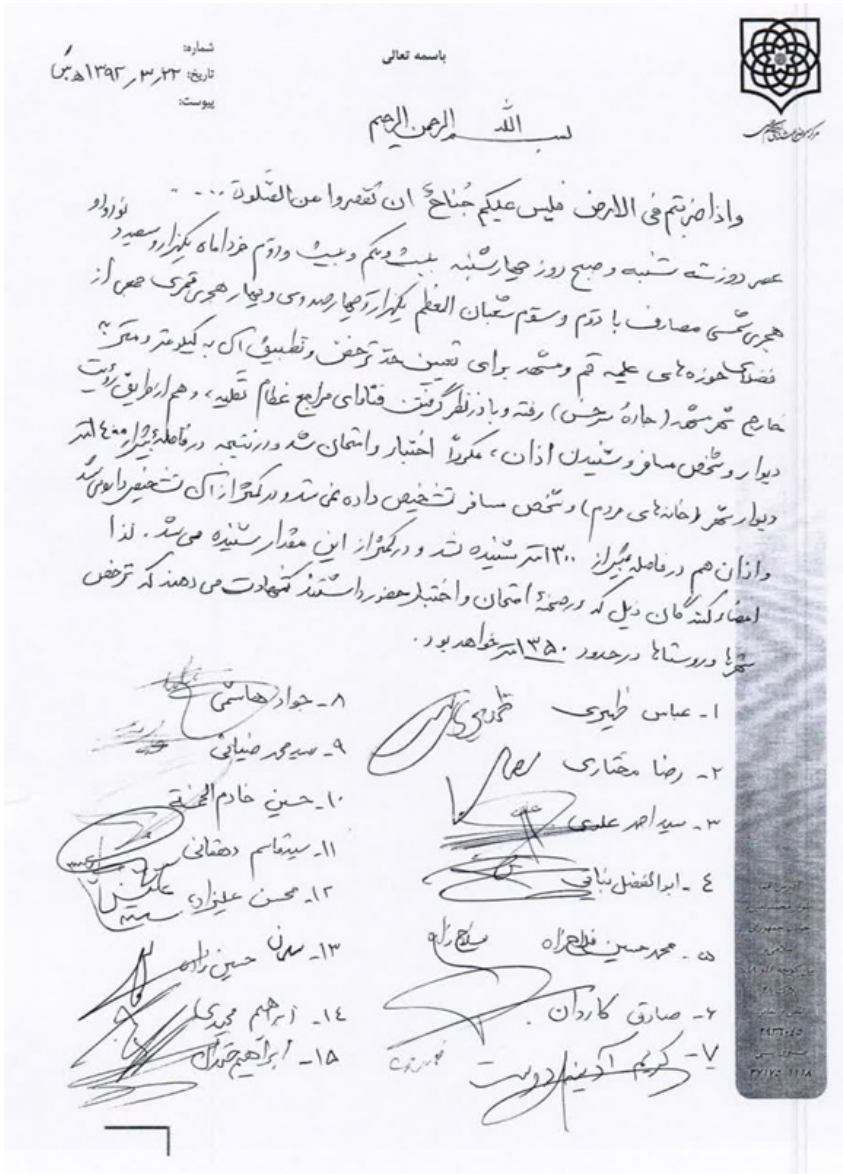 باسمه تعالی
شماره:
تاریخ: ۱۳۹۲٫۳٫۲۲ ه‍ ش
پیوست:
بسم الله الرحمن الرحیم
واذا ضربتم فی الارض فلیس علیکم جُناحٌ ان تقصروا من الصّلوة ....
عصر روز سه شنبه و صبح روز چهارشنبه بیست ویکم و بیست ودوّم خرداماه یکهزار وسیصد و نود و دو
هجری شمسی مصادف با دوّم و سوّم شعبان المعظم یکهزار و چهارصد و سی و چهار هجری قمری جمعی از
فضلای حوزه های علمیه قم ومشهد برای تعیین حدّ ترخص و تطبیق آن به کیلومتر و متر به
خارج شهر مشهد (جادهٔ سرخس) رفته و با درنظر گرفتن فتاوای مراجع عظام تقلید، و هم از طریق رؤیت
دیوار و شخص مسافر و شنیدن اذان، مکرراً اختبار و امتحان شد و در نتیجه در فاصلهٔ بیش از ۱۴۰۰ متر
دیوار شهر (خانه های مردم) و شخص مسافر تشخیص داده نمی شد و در کمتر از آن تشخیص داده می شد
و اذان هم در فاصله بیش از ۱۳۰۰ متر شنیده نشد و در کمتر از این مقدار شنیده می شد. لذا
امضاء کنندگان ذیل که در صحنهٔ امتحان و اختبار حضور داشتند شهادت می دهند که ترخص
شهرها و روستاها در حدود ۱۳۵۰ متر خواهد بود.
۱- عباس ظهیری
۲- رضا مختاری
۳- سید احمد علوی
۴- ابوالفضل بنایی
۵- محمد حسین فلاح زاده
۶- صادق کاردان
۷- کریم آدینه دوست
۸- جواد هاشمی
۹- سید محمد ضیائی
۱۰- حسین خادم الحجة
۱۱- سید قاسم دهقانی
۱۲- محسن علیزاده
۱۳- حسین زاده
۱۴- ابراهیم محمدی
۱۵- ابراهیم